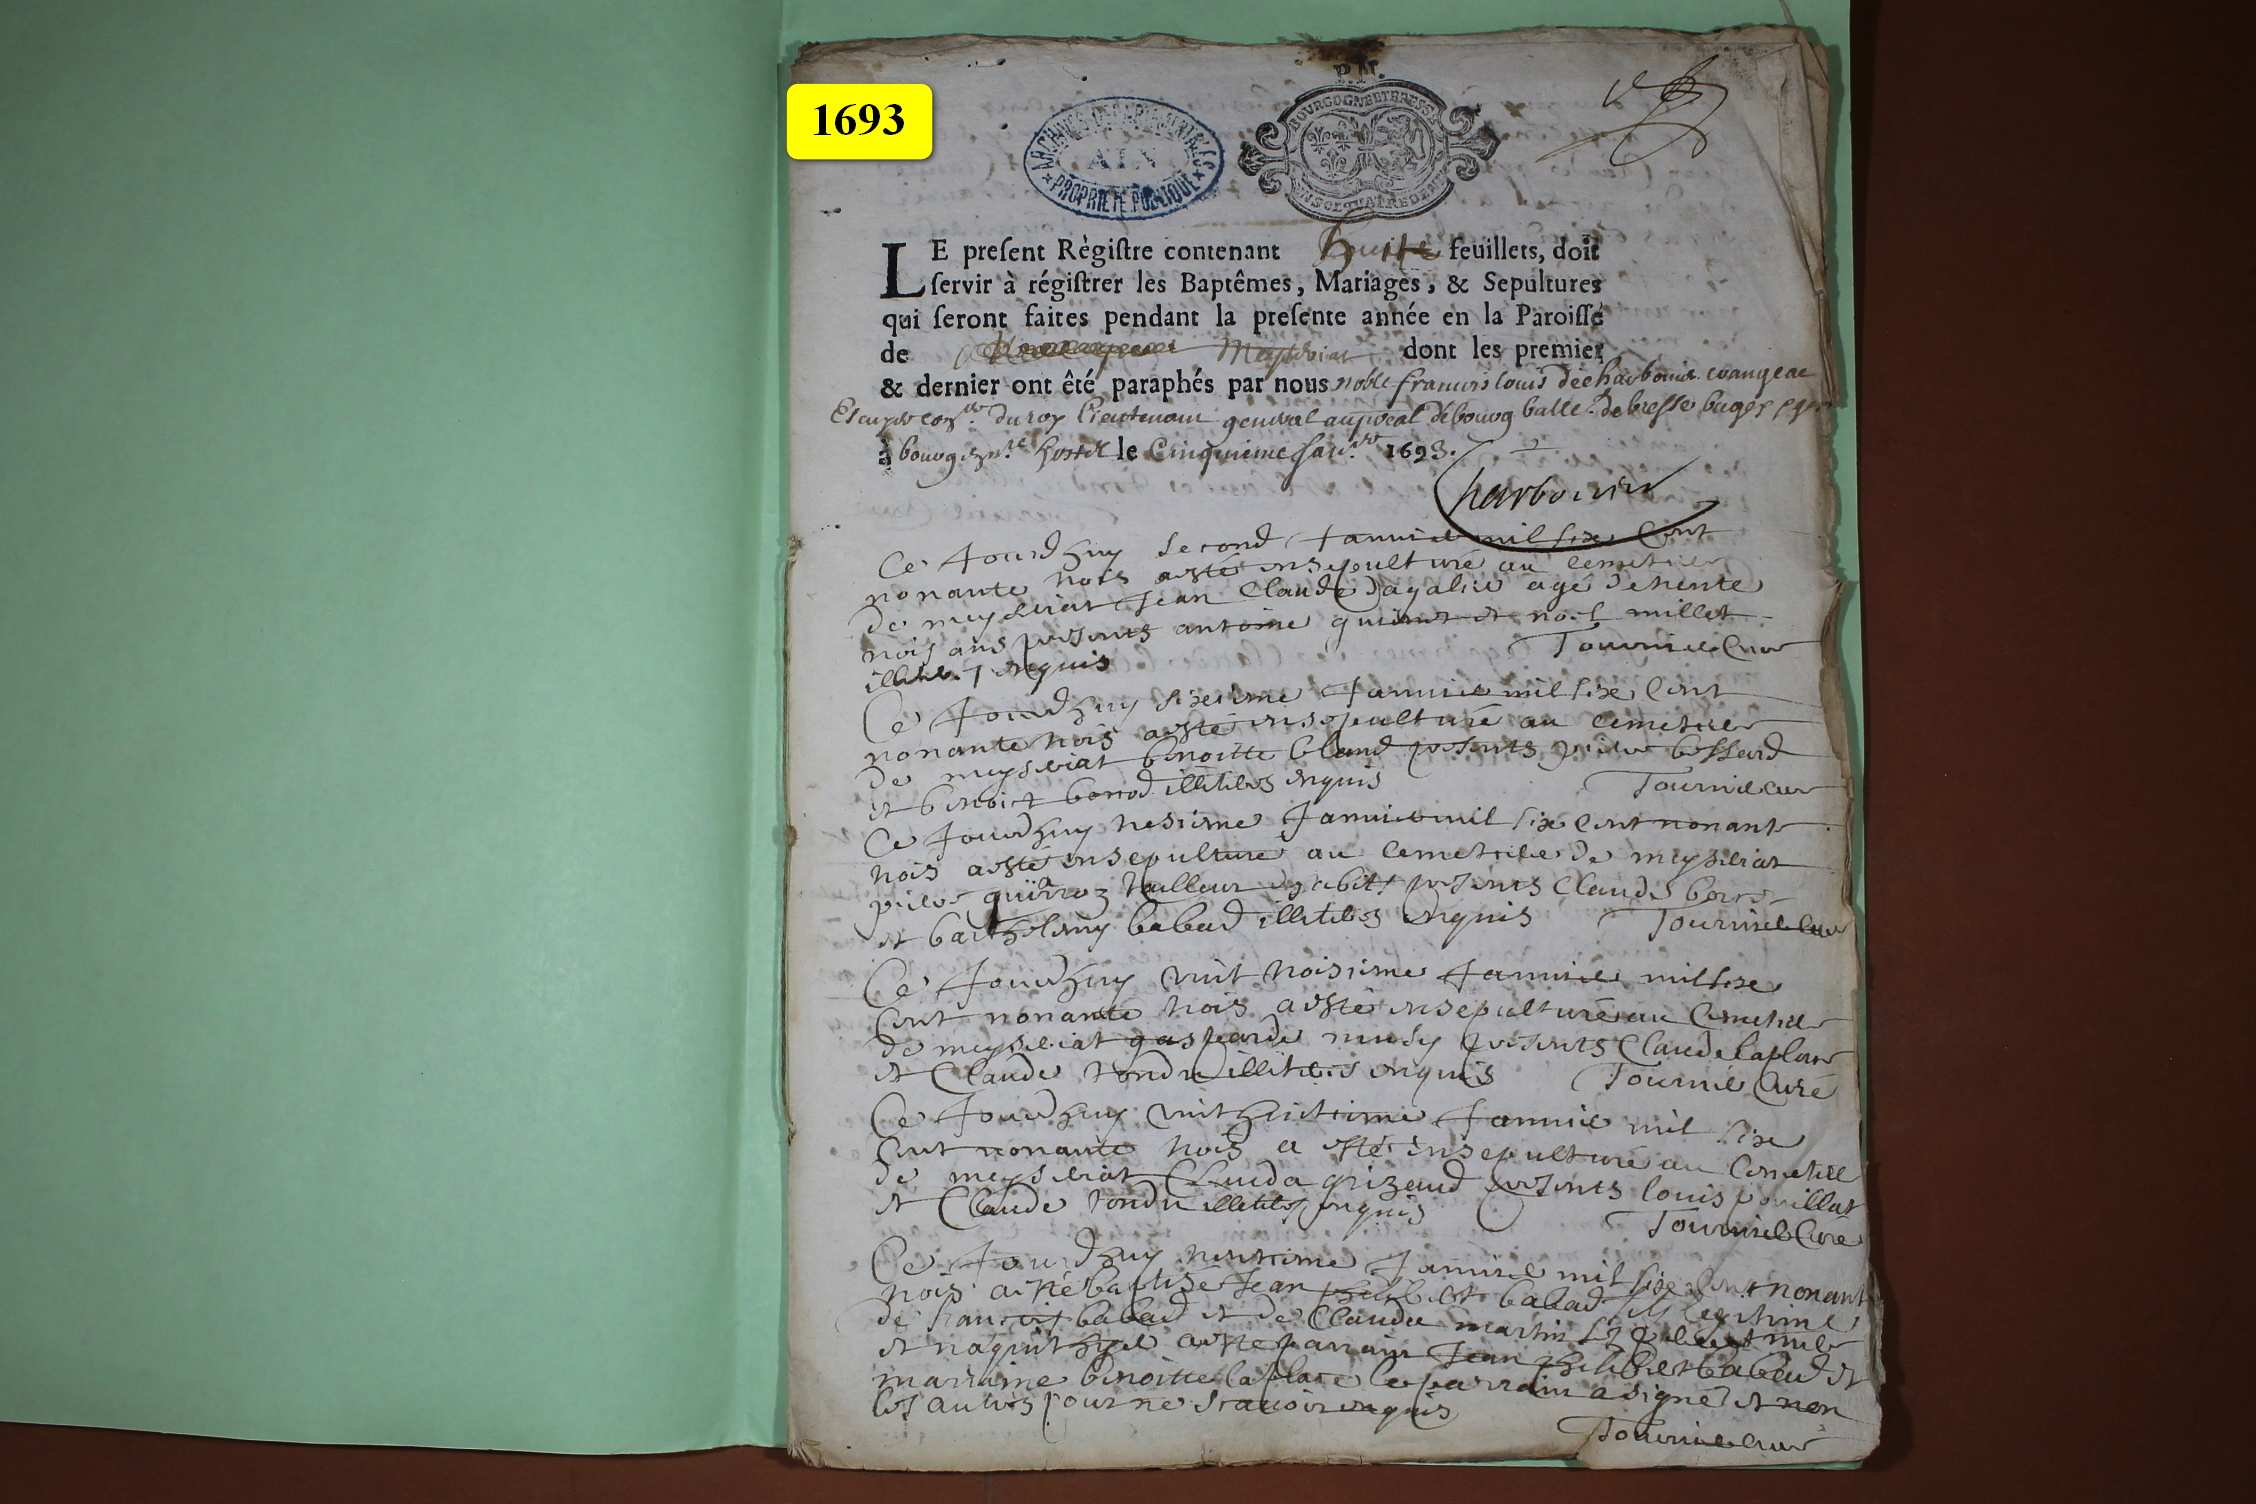 1693
P.N.
ARCHIVES DEPARTEMENTALES
AIN
PROPRIETE PUBLIQUE
BOURGOGNE ET BRESSE
UN SOL QUATRE DEN
LE preſent Règiſtre contenant huit feuillets, doit
ſervir à régiſtrer les Baptêmes, Mariages, & Sepultures
qui ſeront faites pendant la preſente année en la Paroiſſe
de Meyseriat dont les premier
& dernier ont êté paraphés par nous noble francois louis decharbonnier crangeac
Escuyer con.er du roy Lieutenant general au bourg de bresse bugey
à bourg hostel le Cinquieme Janr 1693.
Charbonnier
Ce Jourdhuy second Januier mil six Cent
nonante trois a esté ensepulturé au cemetier
de meyseriat Jean Claude agé de trente
trois ans presents antoine et millet
illiteres enquis Tournier Curé
Ce Jourdhuy sixieme Januier mil six Cent
nonante trois a esté ensepulturé au cemetier
de meyseriat benoitte bland presents pierre bossard
et benoict bonod illiteres enquis Tournier cure
Ce Jourdhuy tresieme Januier mil six cent nonante
trois a esté ensepulturé au cemetier de meyseriat
pierre tailleur dhabits presents Claude
et barthelemy babad illiteres enquis Tournier Cure
Ce Jourdhuy vint troisieme Januier mil six
Cent nonante trois a esté ensepulturé au Cemetier
de meyseriat gasparde musy presents Claude laplace
et Claude tondu illiteres enquis Tournier Curé
Ce Jourdhuy vint huictieme Januier mil six
Cent nonante trois a esté ensepulturé au Cemetier
de meyseriat Clauda grizaud presents louis pouillat
et Claude tondu illiteres enquis
Tournier Curé
Ce Jourdhuy Januier mil six Cent nonante
trois a esté baptisé Jean philibert babad fils legitime
de francois babad et de Claudee martin
et naquit hyer a esté parrain Jean philibert babad et
marraine benoitte laplace le parrain a signé et non
les autres pour ne scauoir enquis
Tournier cure